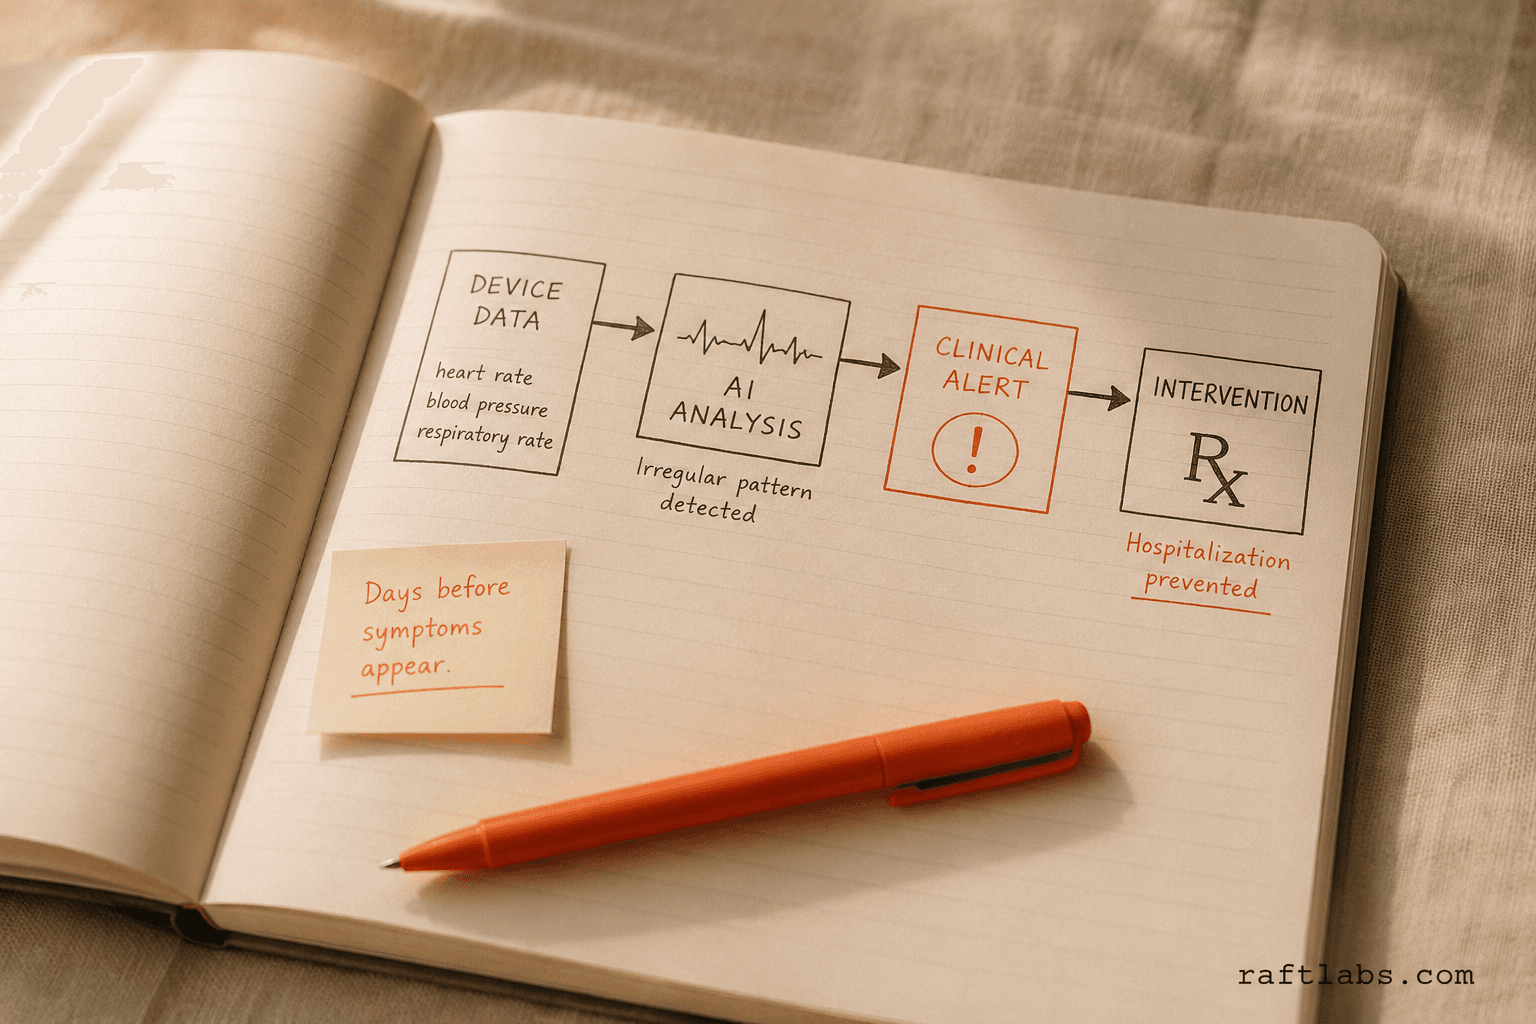 DEVICE
DATA
heart rate
blood pressure
respiratory rate
AI
ANALYSIS
Irregular pattern
detected
CLINICAL
ALERT
!
INTERVENTION
Rx
Hospitalization
prevented
Days before
symptoms
appear.
raftlabs.com